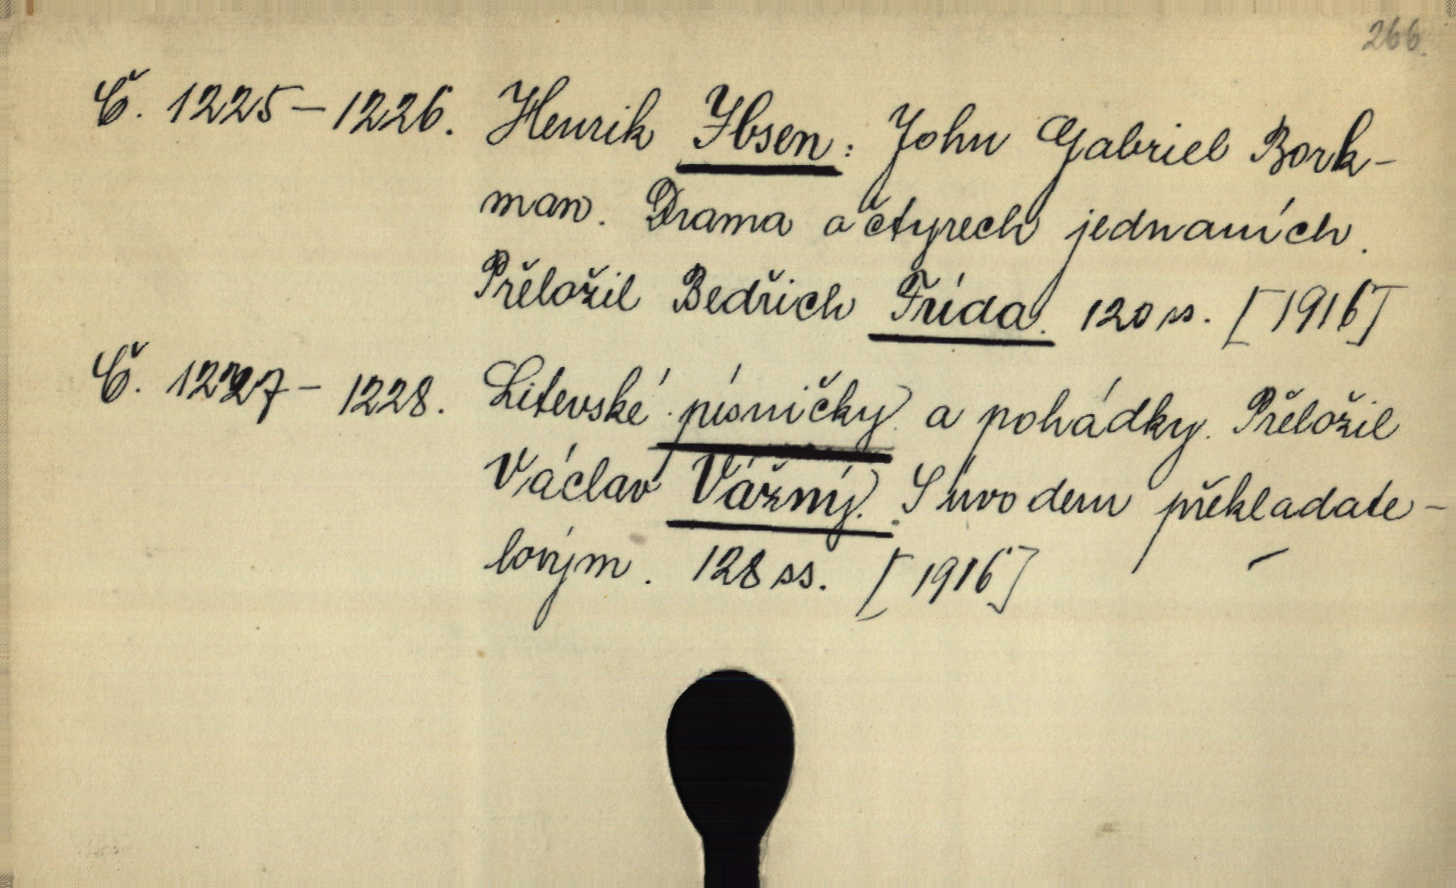 266.
Č. 1225-1226. Henrik Ibsen: John Gabriel Bork-
man. Drama o čtyrech jednaních.
Přeložil Bedřich Frída. 120 ss. [1916]
Č. 1227-1228. Litevské písničky a pohádky. Přeložil
Václav Vážný. S úvodem překladate-
lovým. 128 ss. [1916]